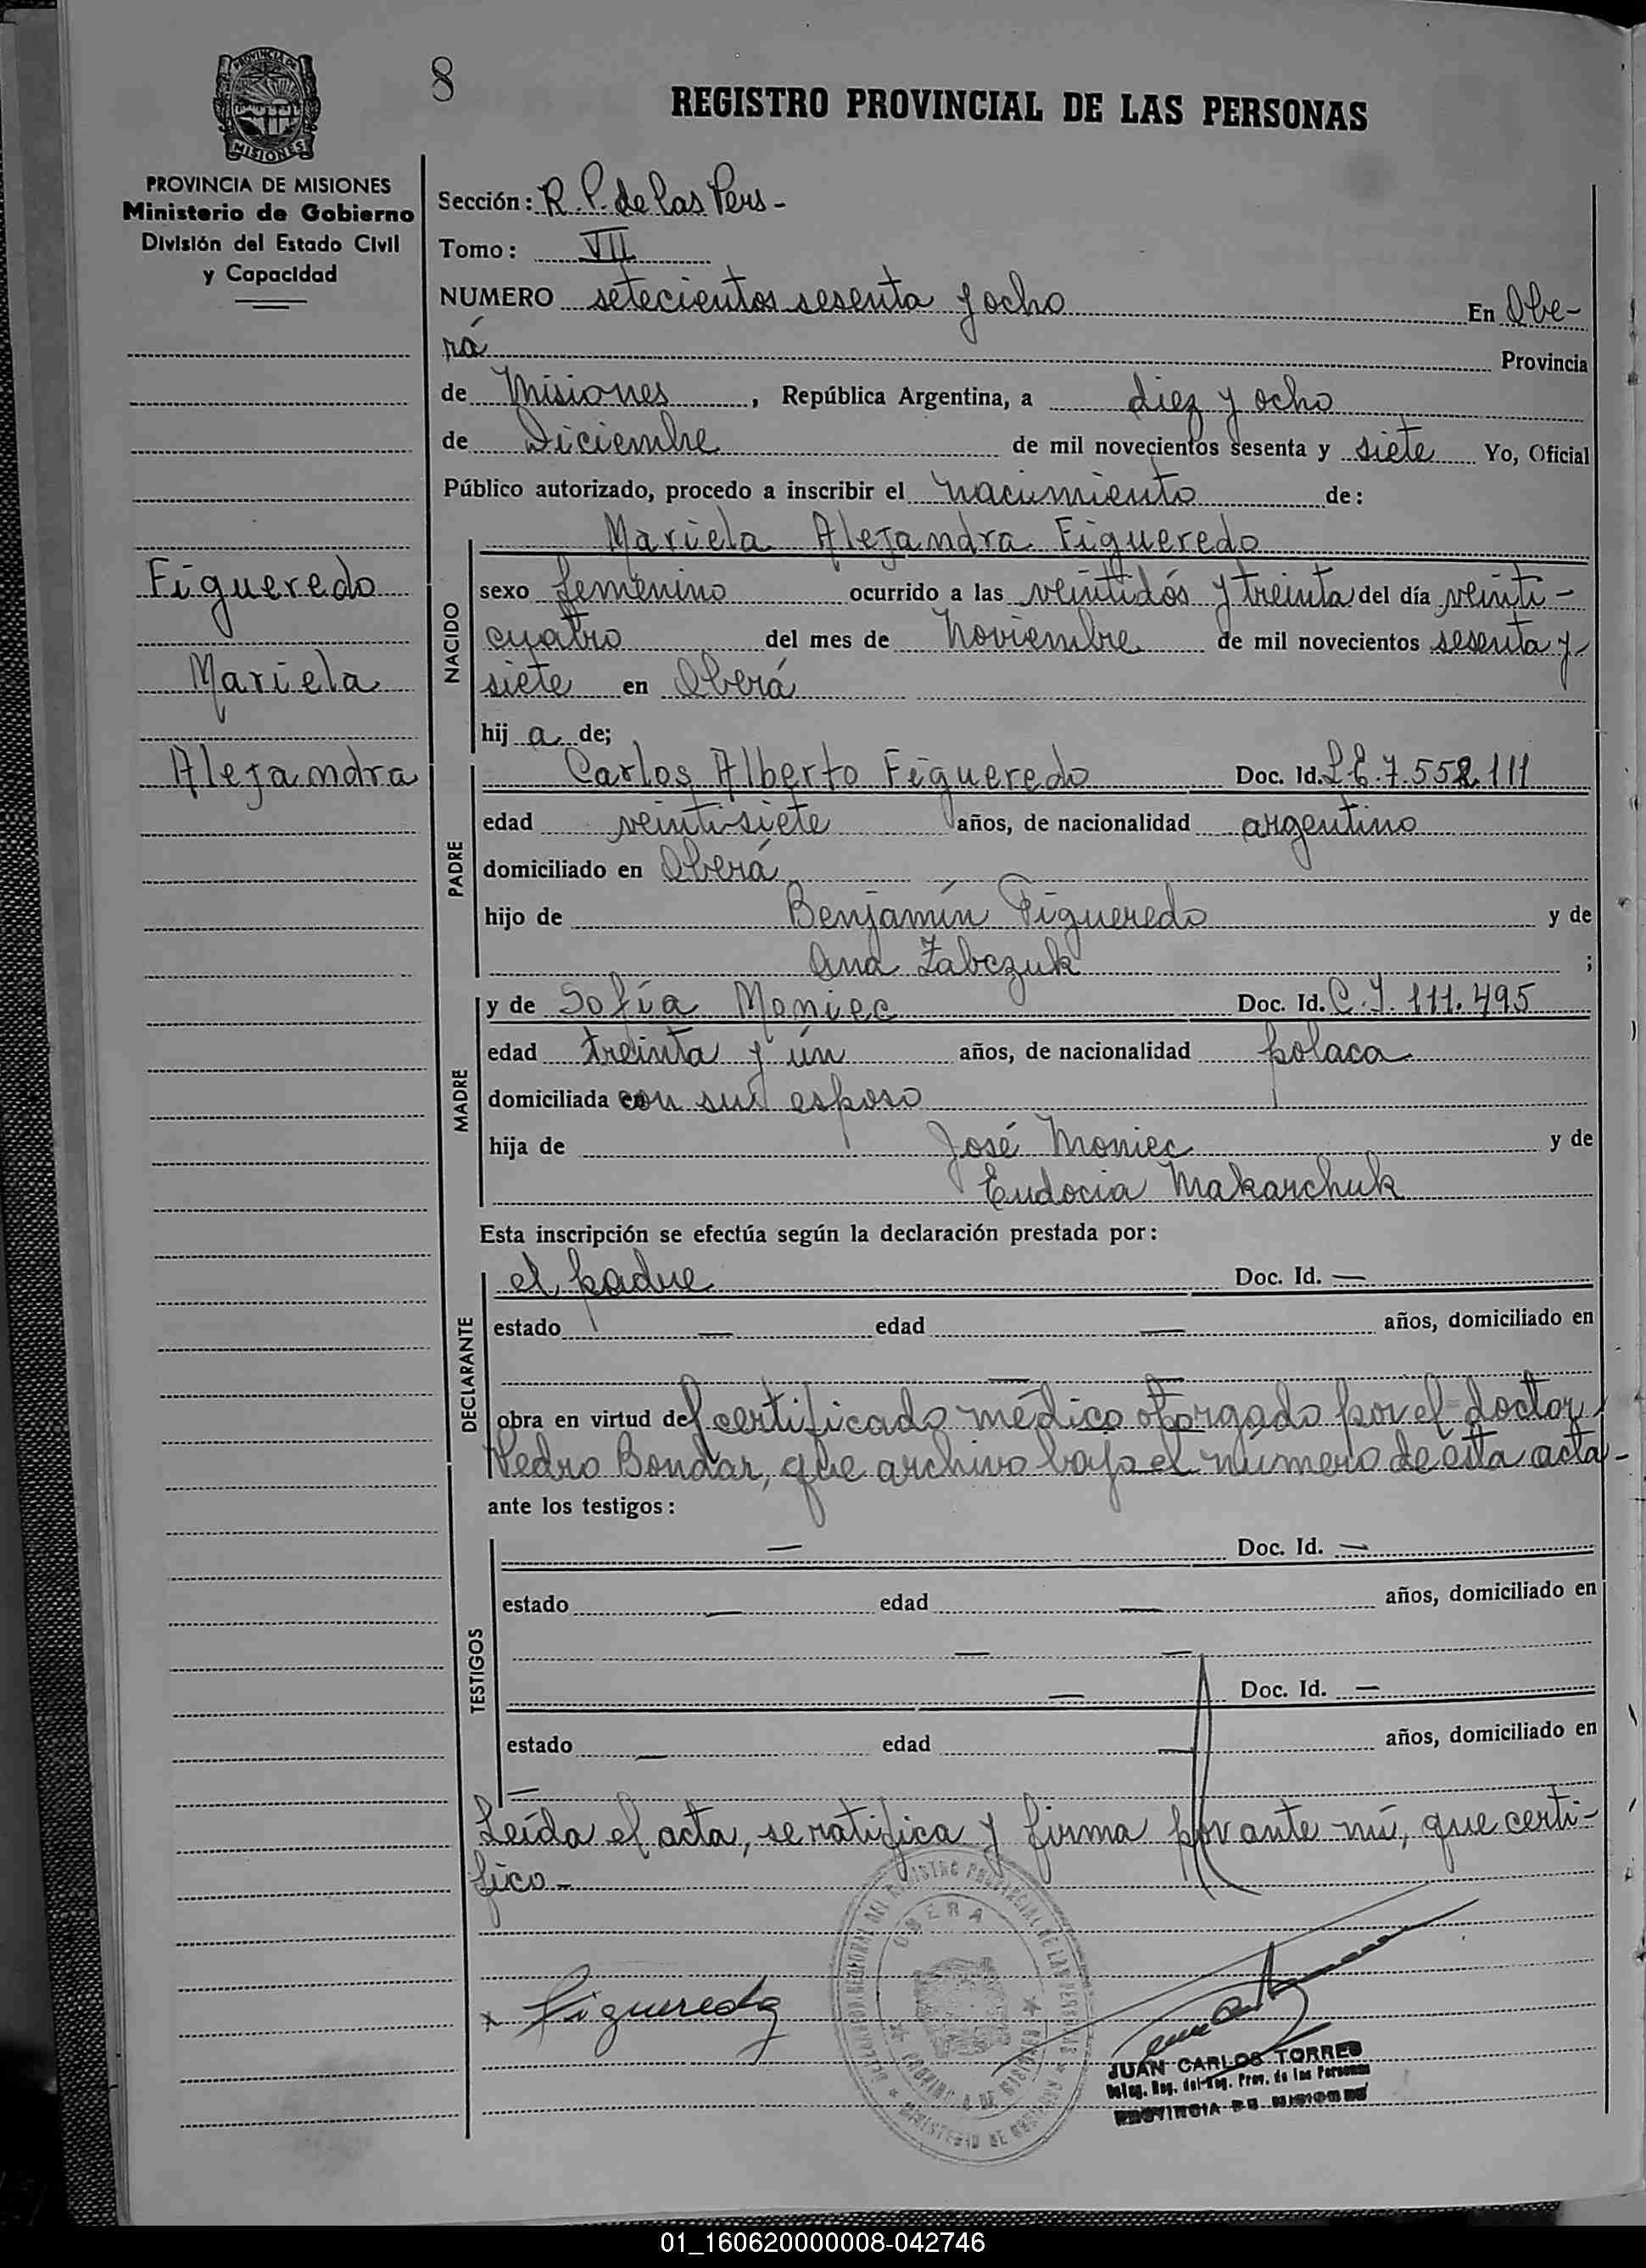 8
REGISTRO PROVINCIAL DE LAS PERSONAS
PROVINCIA DE
MISIONES
PROVINCIA DE MISIONES
Ministerio de Gobierno
División del Estado Civil
y Capacidad
Figueredo
Mariela
Alejandra
Sección: R. P. de las Pers -
Tomo: VII
NUMERO setecientos sesenta y ocho En Obe-
rá Provincia
de Misiones, República Argentina, a diez y ocho
de Diciembre de mil novecientos sesenta y siete Yo, Oficial
Público autorizado, procedo a inscribir el nacimiento de:
NACIDO
Mariela Alejandra Figueredo
sexo femenino ocurrido a las veintidós y treinta del día veinti-
cuatro del mes de Noviembre de mil novecientos sesenta y
siete en Oberá
hij a de;
PADRE
Carlos Alberto Figueredo Doc. Id. L.E. 7.552.111
edad veintisiete años, de nacionalidad argentino
domiciliado en Oberá
hijo de Benjamín Figueredo y de
Ana Zabczuk ;
MADRE
y de Sofía Moniec Doc. Id. C.I. 111.495
edad treinta y ún años, de nacionalidad polaca
domiciliada con su esposo
hija de José Moniec y de
Eudocia Makarchuk
Esta inscripción se efectúa según la declaración prestada por:
DECLARANTE
el padre Doc. Id. —
estado — edad — años, domiciliado en
— —
obra en virtud del certificado médico otorgado por el doctor
Pedro Bondar, que archivo bajo el número de ésta acta -
ante los testigos:
TESTIGOS
— Doc. Id. —
estado — edad — años, domiciliado en
— —
— Doc. Id. —
estado — edad — años, domiciliado en
—
Leída el acta, se ratifica y firma por ante mí, que certi-
fico -
x Figueredo
OBERA
JUAN CARLOS TORRES
Deleg. Reg. del Reg. Prov. de las Personas
PROVINCIA DE MISIONES
01_160620000008-042746